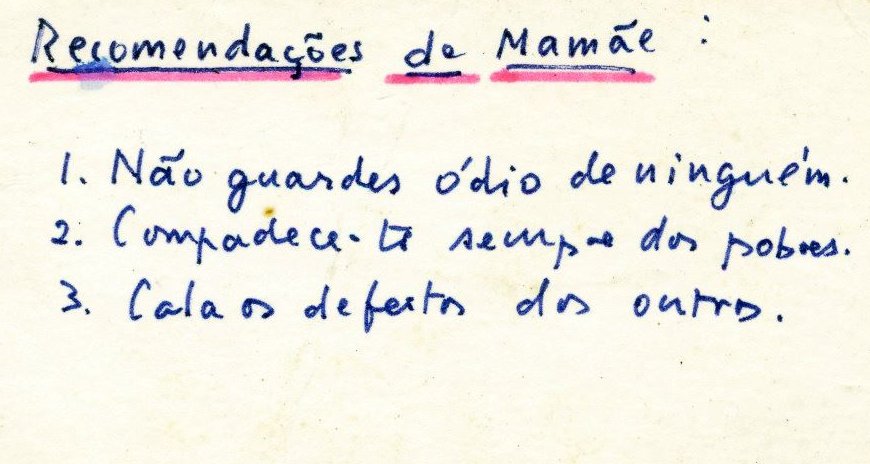 Recomendações de Mamãe :
1. Não guardes ódio de ninguém.
2. Compadece-te sempre dos pobres.
3. Cala os defeitos dos outros.